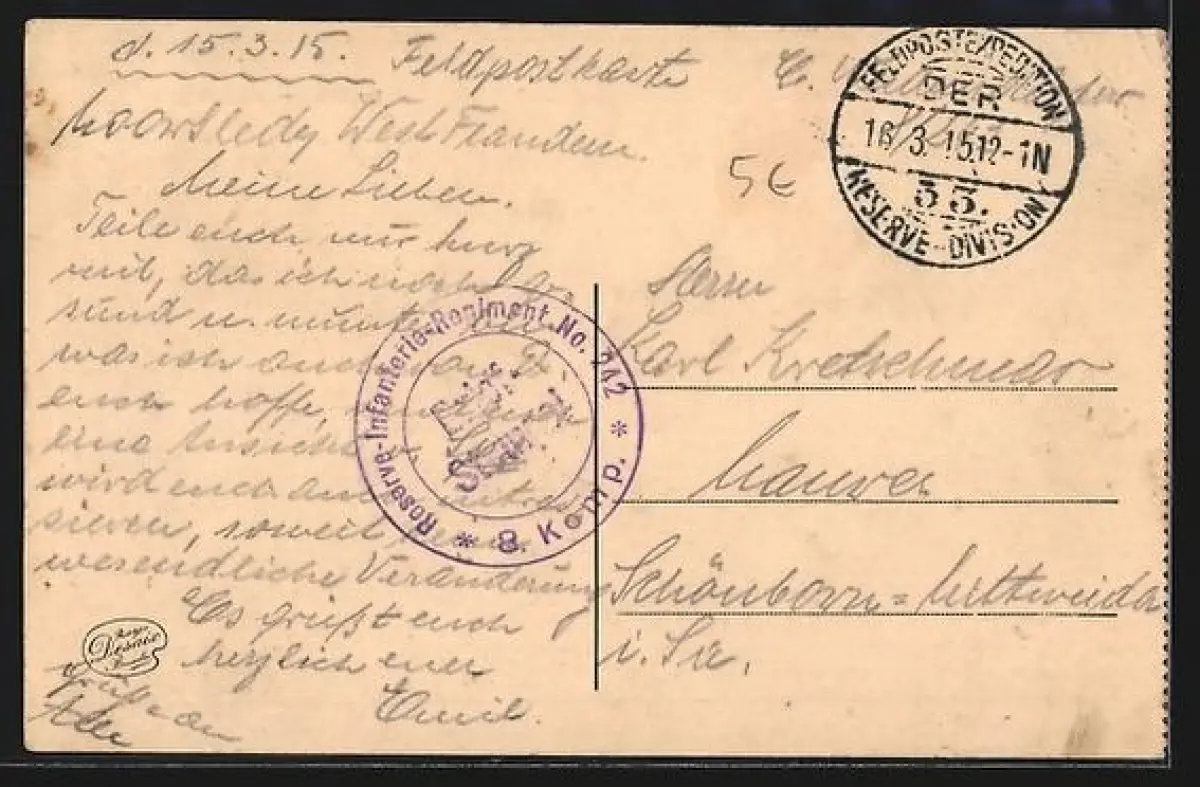 d. 15.3.15. Feldpostkarte
Moorsledy West Flandern.
Meine Lieben.
Teile euch nur kurz
mit, das ich noch ge-
sund u. munter bin
was ich auch von
euch hoffe,
eine Ansicht v.
wird euch auch intres-
sieren, soweit keine
wesendliche Veränderung
Es grüßt euch
herzlich euer
Emil.
Alle
5€
FELDPOSTEXPEDITION
DER
16.3.15.12-1N
53.
RESERVE-DIVISION
Reserve-Infanterie-Regiment No. 242
* 8. Komp. *
Herrn
Karl Kretschmar
Schönborn=Mittweida
i. Sa.
Desaix